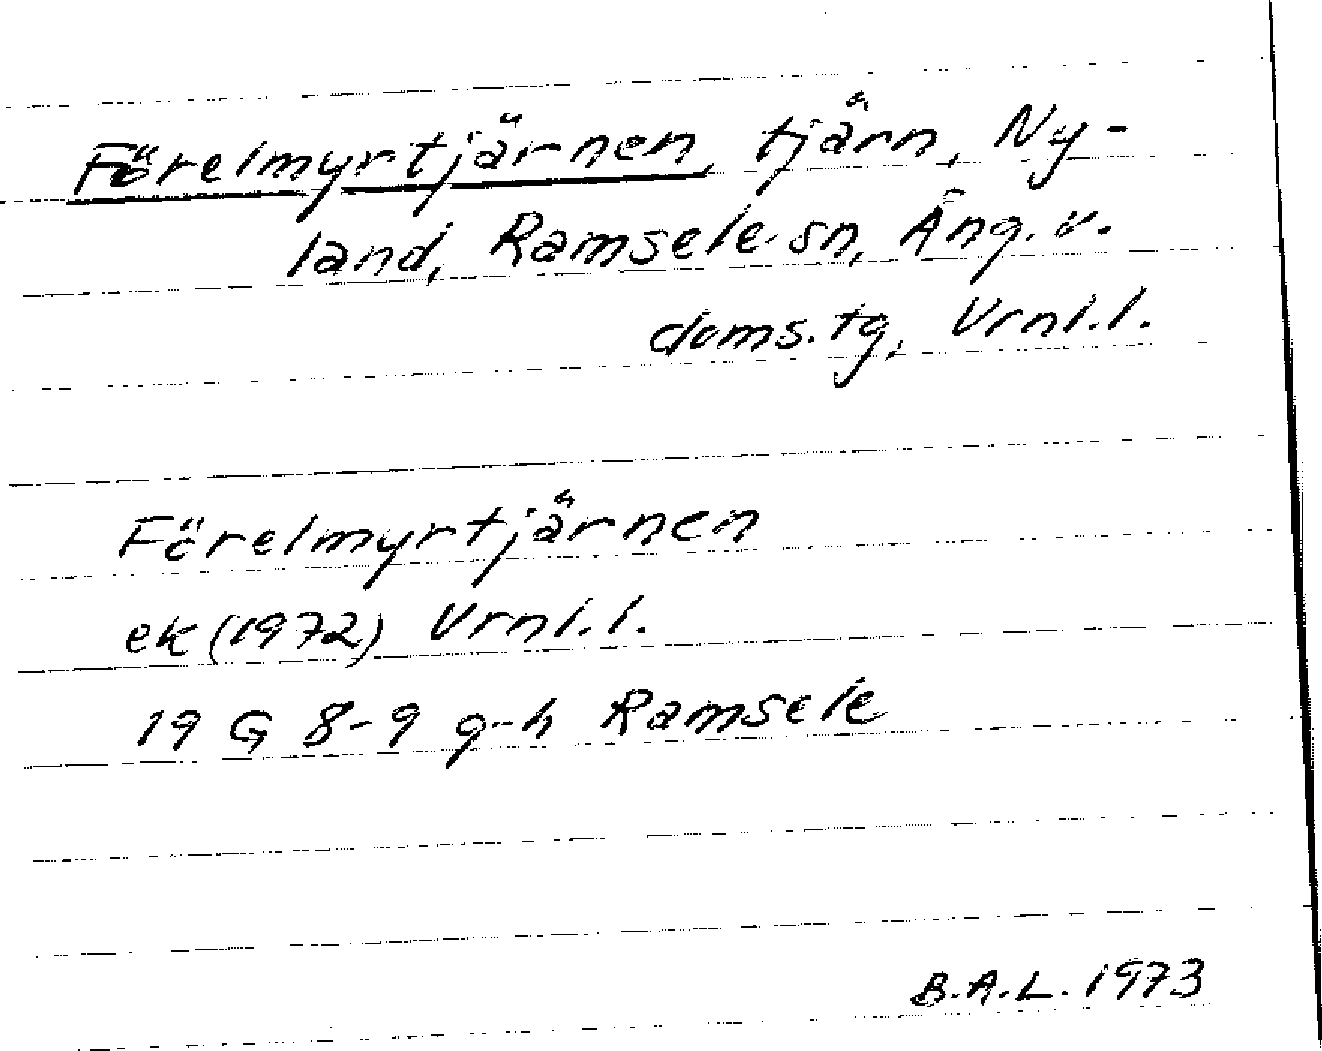 Förelmyrtjärnen, tjärn, Ny-
land, Ramsele sn, Ång. v.
doms. tg, Vrnl. l.
Förelmyrtjärnen
ek (1972) Vrnl. l.
19 G 8-9 g-h Ramsele
B.A.L. 1973